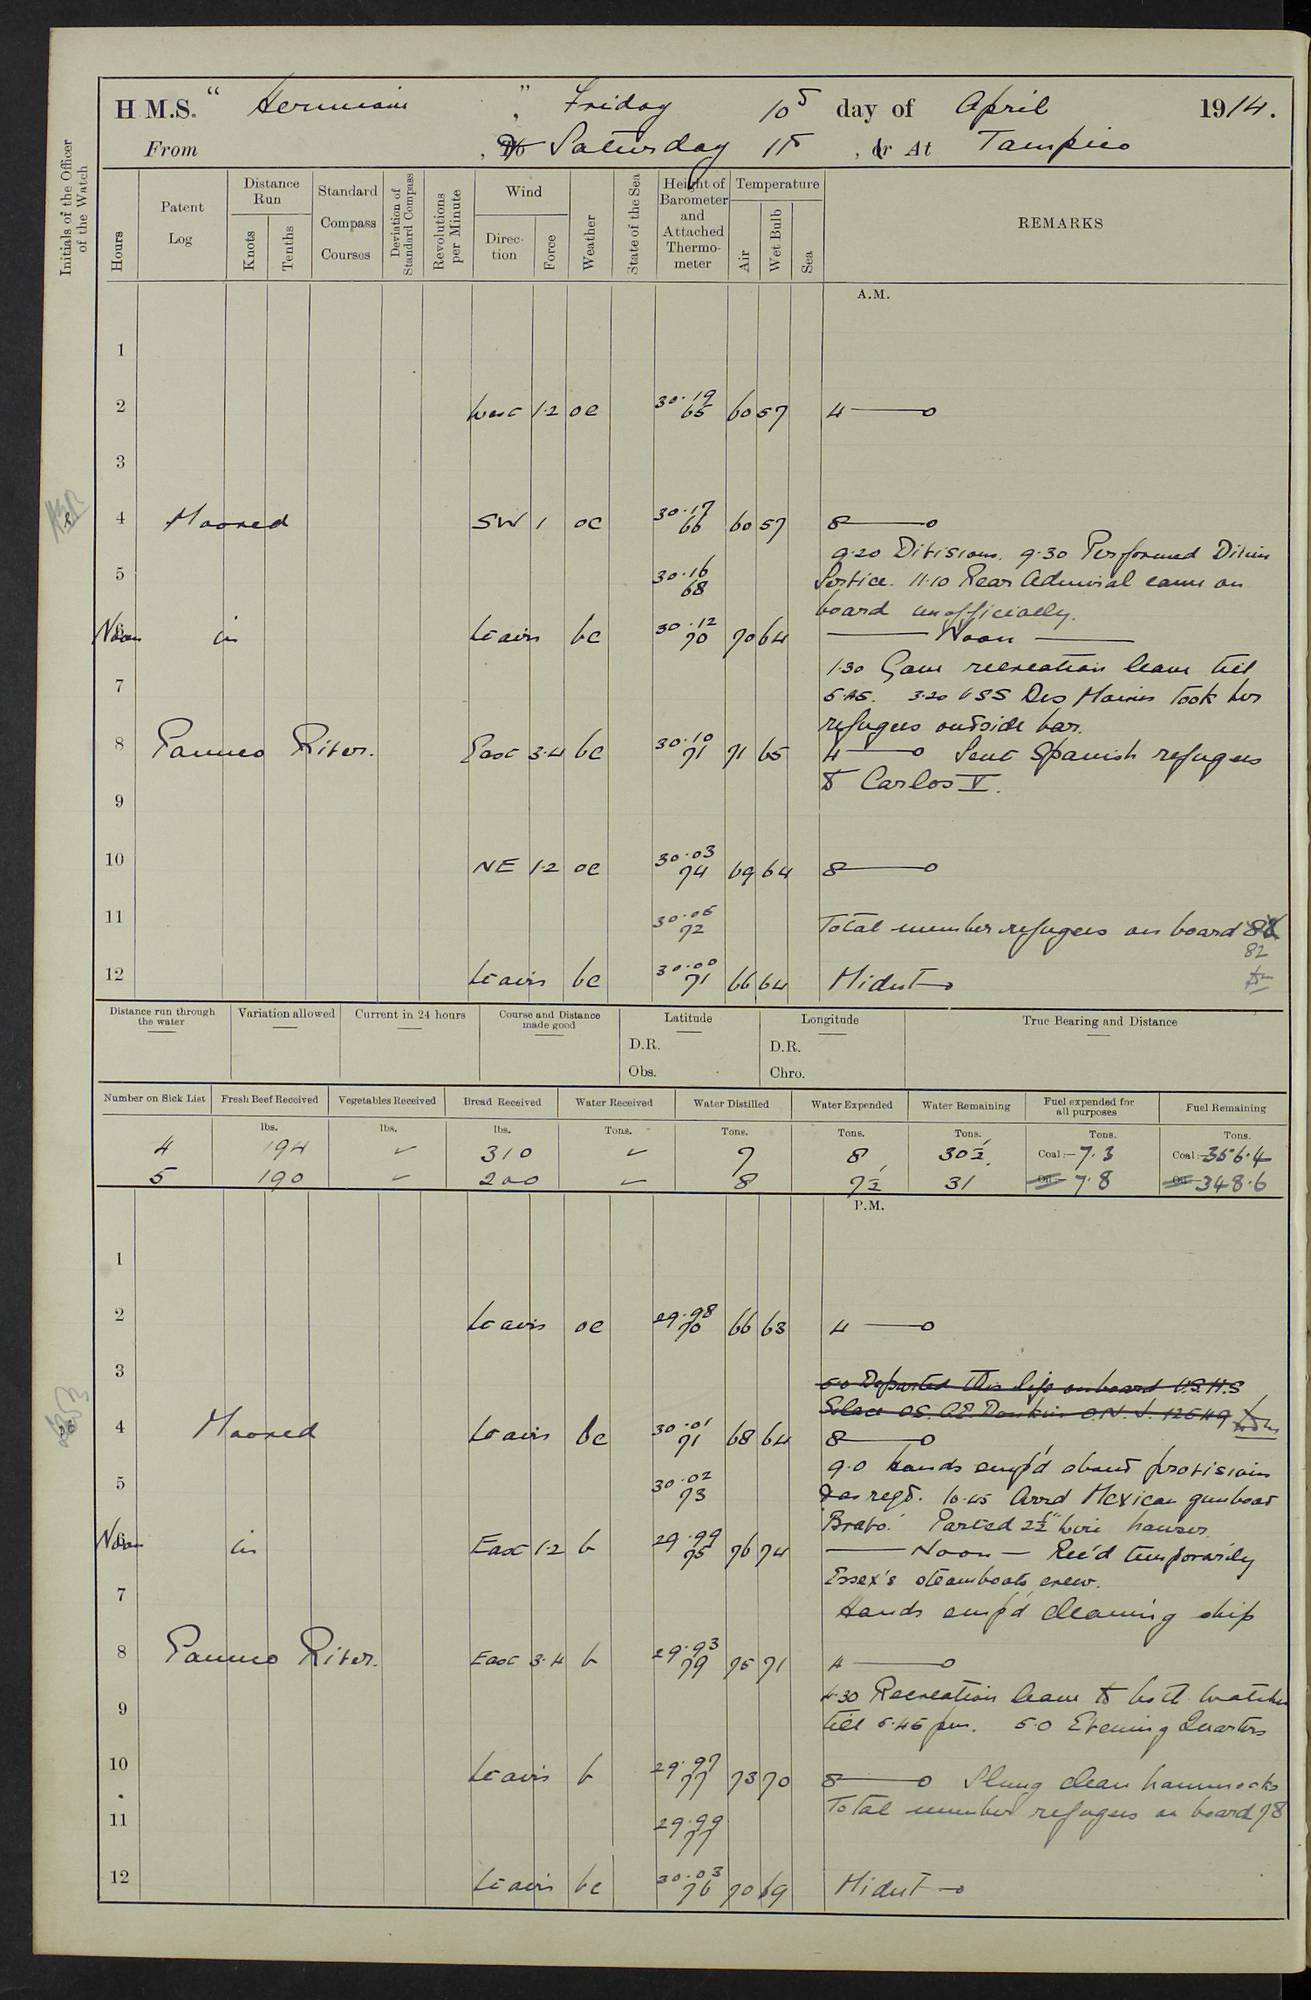 H.M.S. " Hermione ", Friday 10th day of April 1914.
From , To Saturday 11th , or At Tampico
Initials of the Officer of the Watch
Hours
Patent Log
Distance Run
Knots
Tenths
Standard Compass Courses
Deviation of Standard Compass
Revolutions per Minute
Wind
Direction
Force
Weather
State of the Sea
Height of Barometer and Attached Thermometer
Temperature
Air
Wet Bulb
Sea
REMARKS
A.M.
1
2 West 1.2 oc 30.19 65 60 57 4
3
4 Moored SW 1 oc 30.17 66 60 57 8
9.20 Divisions. 9.30 Performed Divine
5 30.16 68 Service. 11.10 Rear Admiral came on
board unofficially.
Noon in Lt airs bc 30.12 70 70 64 Noon
1.30 Gave recreation leave till
7 5.45. 3.20 USS Des Moines took her
refugees outside bar.
8 Panuco River. East 3.4 bc 30.10 71 71 65 4 Sent Spanish refugees
to Carlos V.
9
10 NE 1.2 oc 30.03 74 69 64 8
11 30.05 72 Total number refugees on board
82
12 Lt airs bc 30.00 71 66 64 Midnt
Distance run through the water
Variation allowed
Current in 24 hours
Course and Distance made good
Latitude
D.R.
Obs.
Longitude
D.R.
Chro.
True Bearing and Distance
Number on Sick List Fresh Beef Received Vegetables Received Bread Received Water Received Water Distilled Water Expended Water Remaining Fuel expended for all purposes Fuel Remaining
lbs. lbs. lbs. Tons. Tons. Tons. Tons. Tons. Tons.
4 194 ✓ 310 ✓ 7 8 30½ Coal:- 7.3 Coal:- 356.4
5 190 ✓ 200 ✓ 8 7½ 31 Oil:- 7.8 Oil:- 348.6
P.M.
1
2 Lt airs oc 29.98 70 66 63 4
3
5.0 Departed this life on board U.S.H.S
Solace O.S. A.E. O.N. J. 12649
4 Moored Lt airs bc 30.01 71 68 64 8
9.0 hands emp'd about provisions
5 30.02 73 & as reqd. 10.45 Arrd Mexican gunboat
'Bravo.' Parted 2½" wire hawser
Noon in East 1.2 b 29.99 75 76 74 Noon Rec'd temporarily
Essex's steamboats crew.
7 Hands emp'd cleaning ship
8 Panuco River. East 3.4 b 29.93 79 75 71 4
4.30 Recreation leave to both watches
9 till 5.45 pm. 5.0 Evening Quarters
10 Lt airs b 29.97 77 73 70 8 Slung clean hammocks
Total number refugees on board 78
11 29.99 77
12 Lt airs bc 30.03 76 70 69 Midnt